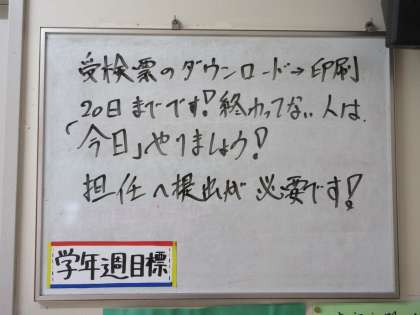 受検票のダウンロード→印刷
20日までです！終わってない人は、
「今日」やりましょう！
担任へ提出が必要です！
学年週目標